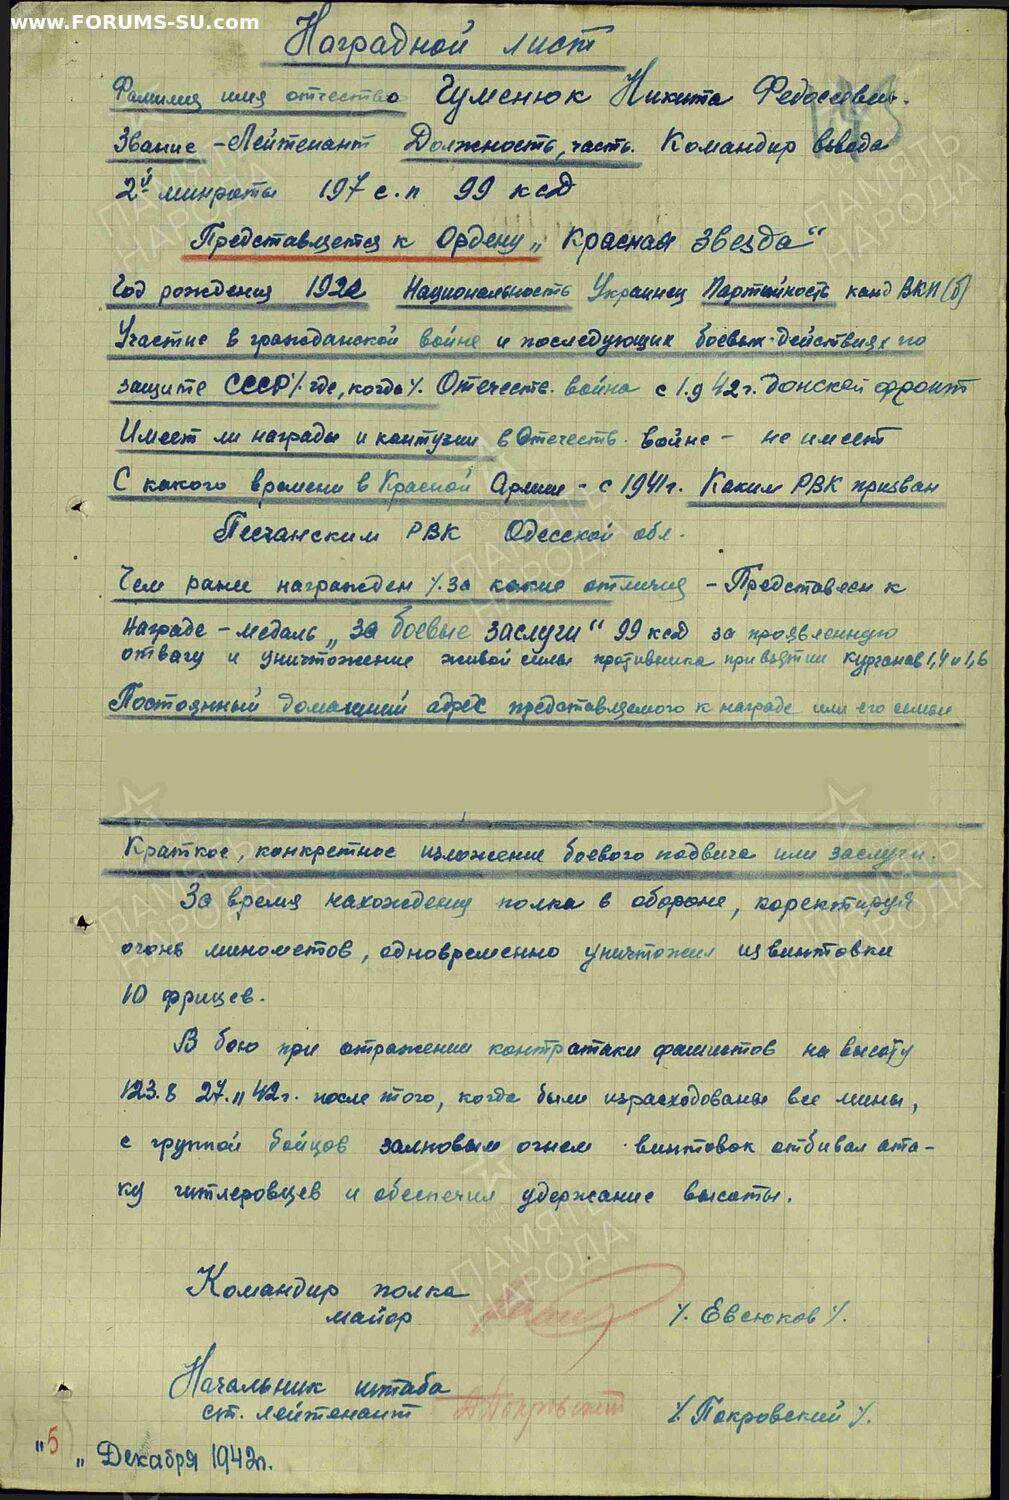 www.FORUMS-SU.com
Наградной лист
Фамилия имя отчество Гуменюк Никита Федосеевич.
Звание - Лейтенант Должность, часть. Командир взвода
2й минроты 197 с.п 99 ксд
Представляется к Ордену „Красная звезда“
Год рождения 1922 Национальность Украинец Партийность канд ВКП(б)
Участие в гражданской войне и последующих боевых действиях по
защите СССР /. где, когда /. Отечеств. война с 1.9 42 г. Донской фронт
Имеет ли награды и контузии в Отечеств. войне - не имеет
С какого времени в Красной Армии - с 1941 г. Каким РВК призван
Песчанским РВК Одесской обл.
Чем ранее награжден /. за какие отличия - Представлен к
Награде - медаль „за боевые заслуги“ 99 ксд за проявленную
отвагу и уничтожение живой силы противника при взятии курганов 1,4 и 1,6
Постоянный домашний адрес представляемого к награде или его семьи
Краткое, конкретное изложение боевого подвига или заслуги.
За время нахождения полка в обороне, коректируя
огонь минометов, одновременно уничтожил из винтовки
10 фрицев.
В бою при отражении контратаки фашистов на высоту
123.8 27.11 42 г. после того, когда были израсходованы все мины,
с группой бойцов залповым огнем винтовок отбивал ата-
ку гитлеровцев и обеспечил удержание высоты.
Командир полка
майор /. Евсюков /.
Начальник штаба
ст. лейтенант Покровский /. Покровский /.
„5„ Декабря 1942 г.
ПАМЯТЬ НАРОДА